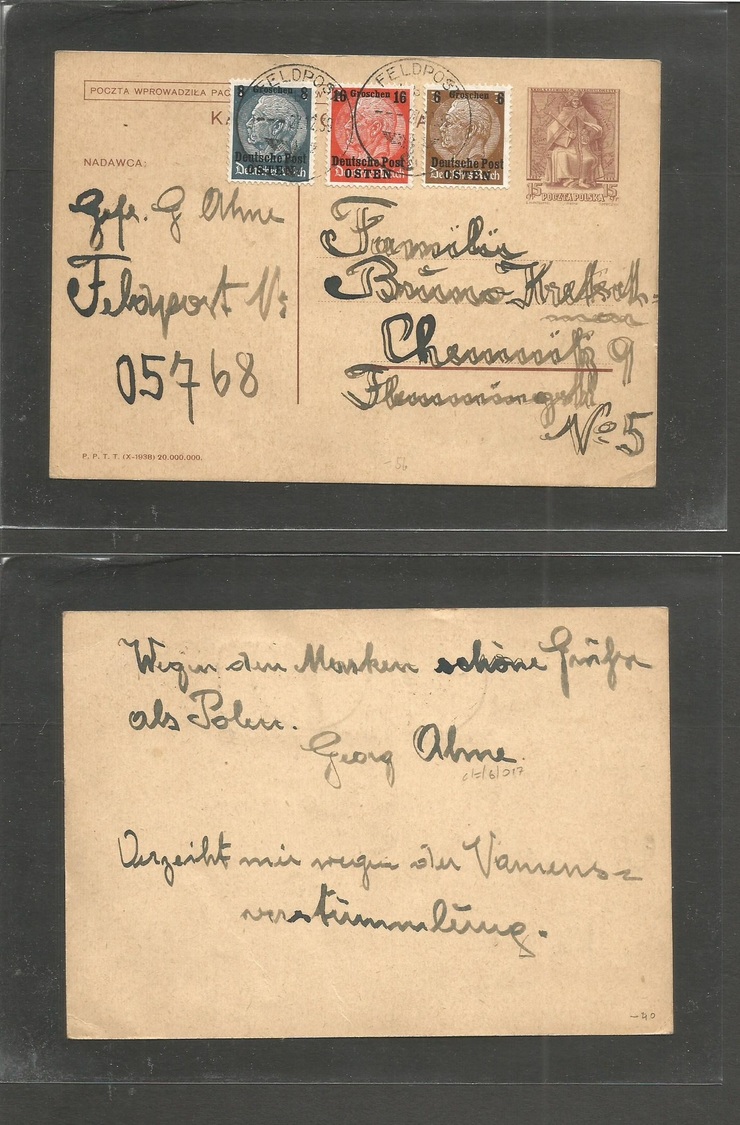 POCZTA WPROWADZIŁA PAC
KA
FELDPOST
FELDPOST
8 Groschen 8
Deutsche Post
OSTEN
16 Groschen 16
Deutsche Post
OSTEN
6 Groschen 6
Deutsche Post
OSTEN
15 POCZTA POLSKA 15
NADAWCA:
Gefr. G Ahme
Feldpost No
05768
Familie
Bruno Kretsch=
mar
Chemnitz 9
Flemmingstr
No 5
P. P. T. T. (X-1938) 20.000.000.
Wegen den Marken schöne Grüße
als Polen.
Georg Ahme
Verzeiht mir wegen der Namens=
verstümmlung.
-40